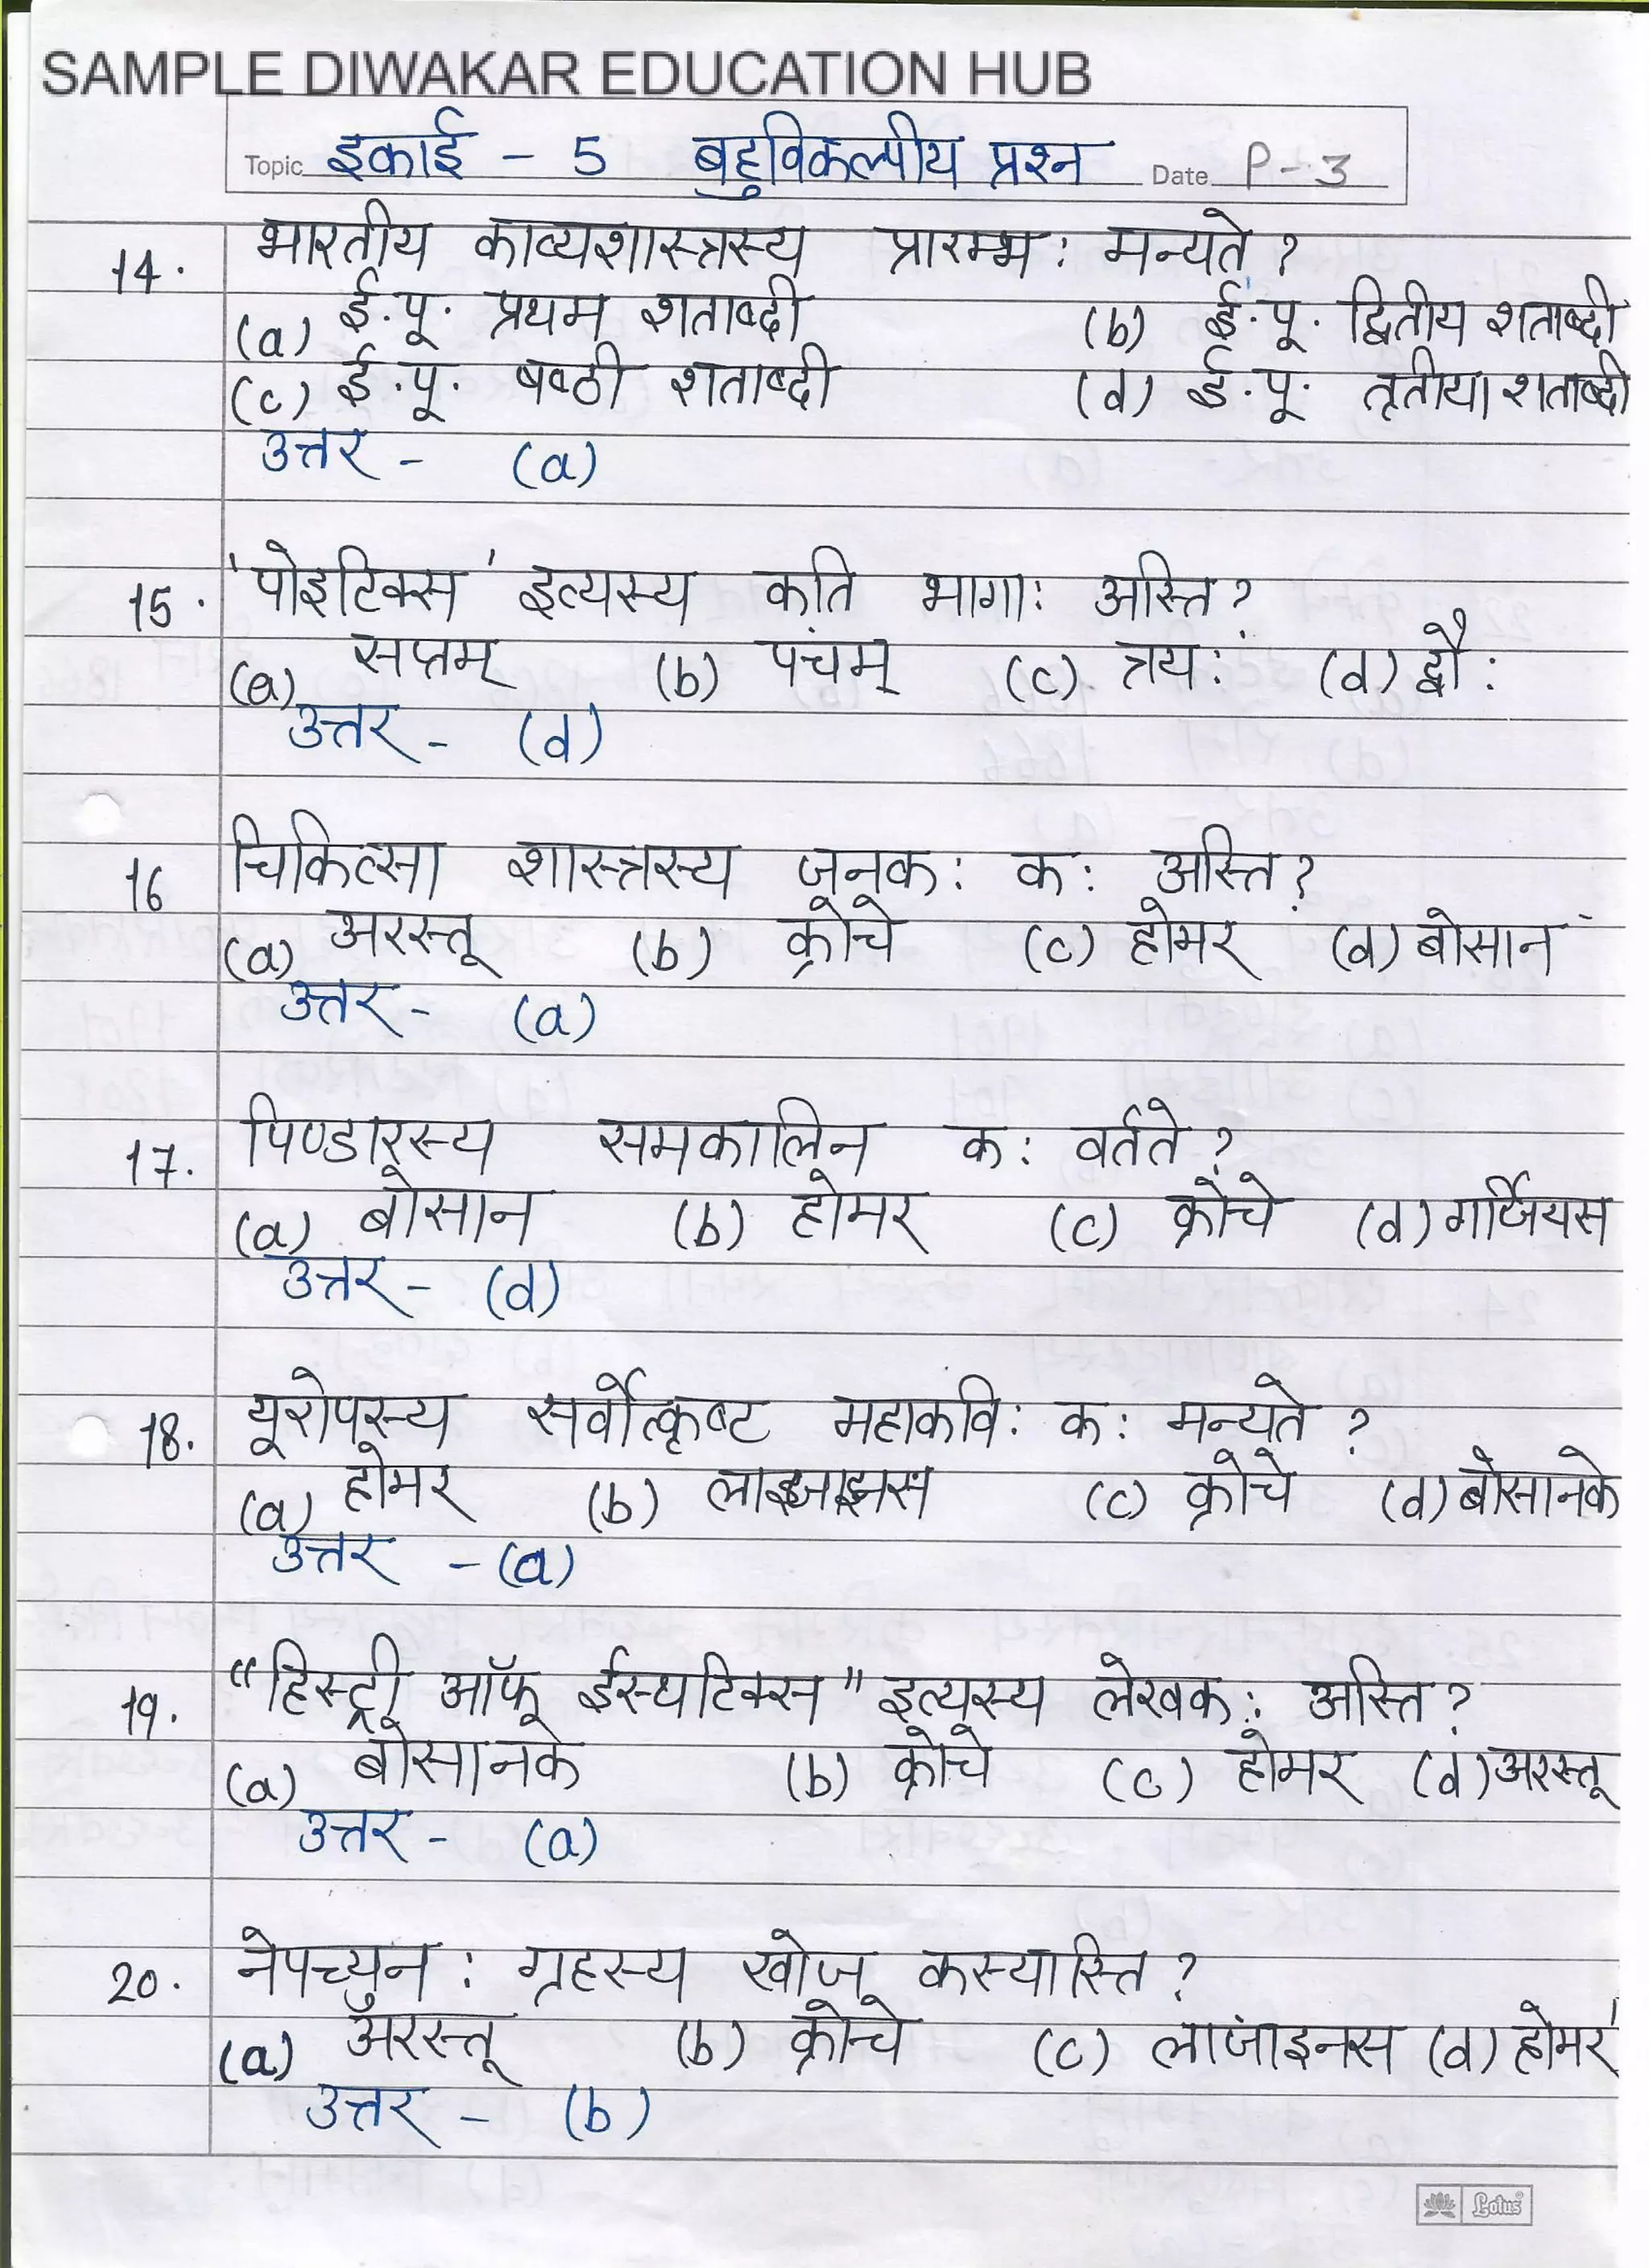 SAMPLE DIWAKAR EDUCATION HUB
Topic इकाई - 5 बहुविकल्पीय प्रश्न Date P-3
14. भारतीय काव्यशास्त्रस्य प्रारम्भ: मन्यते ?
(a) ई.पू. प्रथम शताब्दी (b) ई.पू. द्वितीय शताब्दी
(c) ई.पू. षष्ठी शताब्दी (d) ई.पू. तृतीया शताब्दी
उत्तर - (a)
15. 'पोइटिक्स' इत्यस्य कति भागा: अस्ति ?
(a) सप्तम् (b) पंचम् (c) त्रय: (d) द्वौ:
उत्तर - (d)
16 चिकित्सा शास्त्रस्य जनक: क: अस्ति ?
(a) अरस्तू (b) क्रोचे (c) होमर (d) बोसान
उत्तर - (a)
17. पिण्डारस्य समकालिन क: वर्तते ?
(a) बोसान (b) होमर (c) क्रोचे (d) गार्जियस
उत्तर - (d)
18. यूरोपस्य सर्वोत्कृष्ट महाकवि: क: मन्यते ?
(a) होमर (b) (c) क्रोचे (d) बोसानके
उत्तर - (a)
19. "हिस्ट्री ऑफ ईस्थटिक्स" इत्यस्य लेखक: अस्ति ?
(a) बोसानके (b) क्रोचे (c) होमर (d) अरस्तू
उत्तर - (a)
20. नेपच्युन: ग्रहस्य खोज कस्यास्ति ?
(a) अरस्तू (b) क्रोचे (c) लाजांइनस (d) होमर
उत्तर - (b)
Lotus